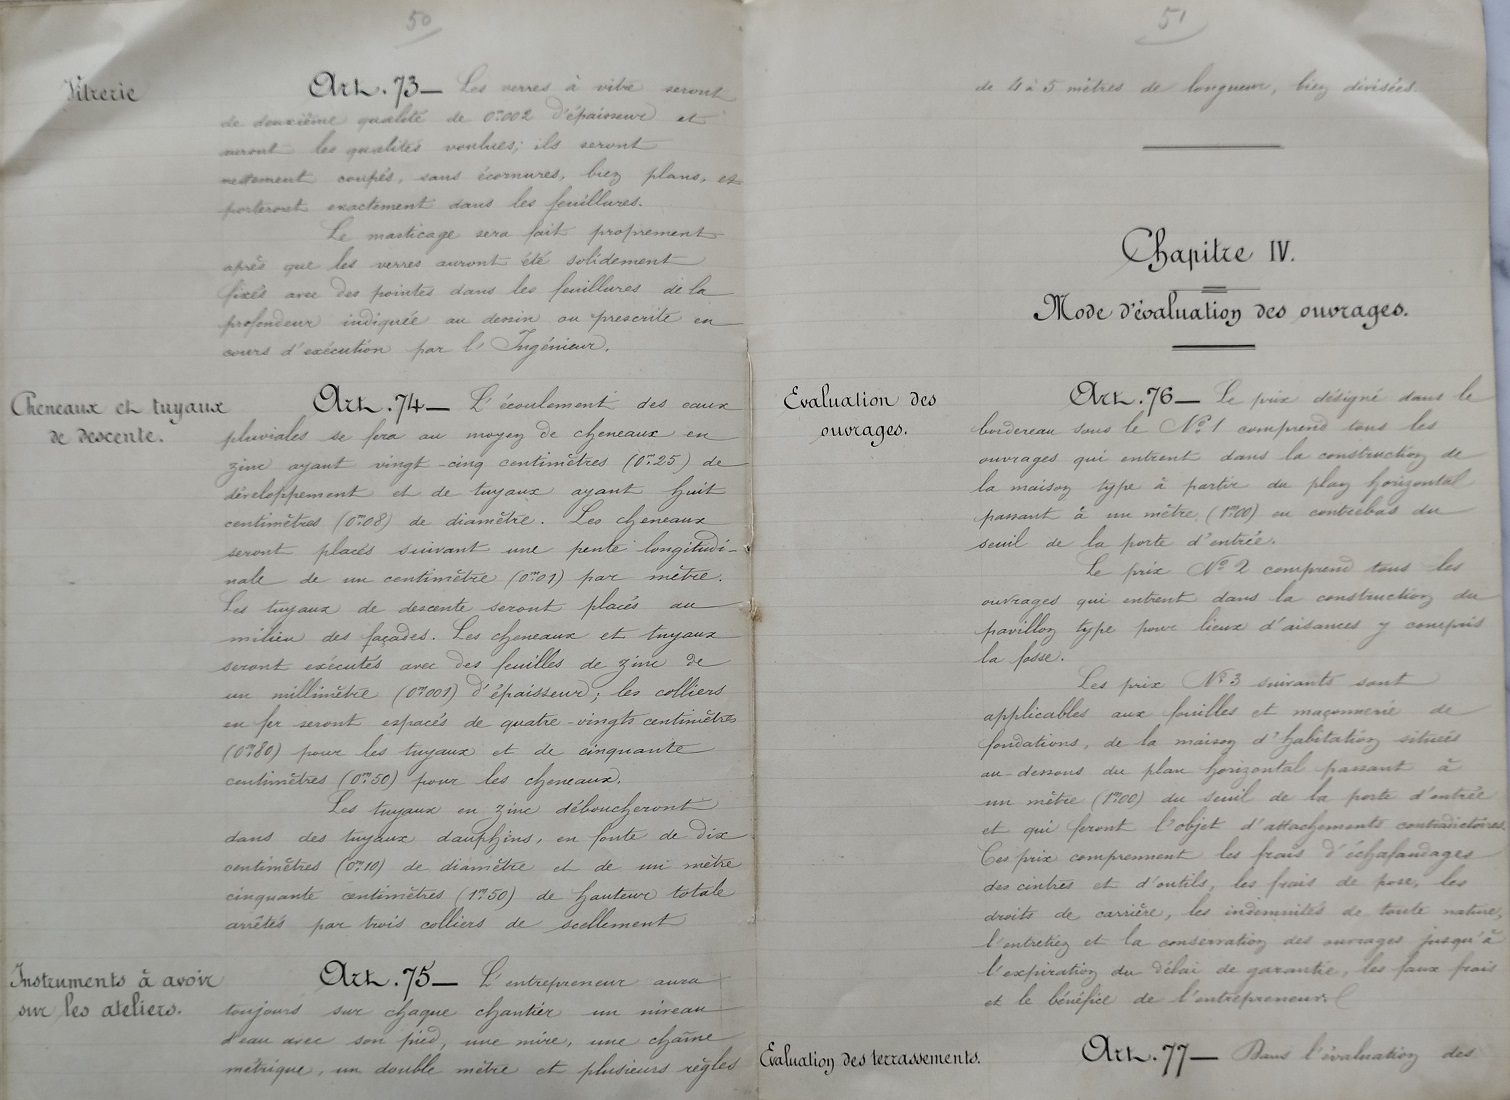 50
Vitrerie
Art. 73 — Les verres à vitre seront
de deuxième qualité de 0m002 d'épaisseur et
auront les qualités voulues; ils seront
nettement coupés, sans écornures, bien plans, et
porteront exactement dans les feuillures.
Le masticage sera fait proprement
après que les verres auront été solidement
fixés avec des pointes dans les feuillures de la
profondeur indiquée au dessin ou prescrite en
cours d'exécution par l'Ingénieur.
Cheneaux et tuyaux
de descente.
Art. 74 — L'écoulement des eaux
pluviales se fera au moyen de cheneaux en
zinc ayant vingt-cinq centimètres (0m25) de
développement et de tuyaux ayant huit
centimètres (0m08) de diamètre. Les cheneaux
seront placés suivant une pente longitudi-
nale de un centimètre (0m01) par mètre.
Les tuyaux de descente seront placés au
milieu des façades. Les cheneaux et tuyaux
seront exécutés avec des feuilles de zinc de
un millimètre (0m001) d'épaisseur; les colliers
en fer seront espacés de quatre-vingts centimètres
(0m80) pour les tuyaux et de cinquante
centimètres (0m50) pour les cheneaux.
Les tuyaux en zinc déboucheront
dans des tuyaux dauphins, en fonte de dix
centimètres (0m10) de diamètre et de un mètre
cinquante centimètres (1m50) de hauteur totale
arrêtés par trois colliers de scellement
Instruments à avoir
sur les ateliers.
Art. 75 — L'entrepreneur aura
toujours sur chaque chantier un niveau
d'eau avec son pied, une mire, une chaîne
métrique, un double mètre et plusieurs règles
51
de 4 à 5 mètres de longueur, bien divisées.
Chapitre IV.
Mode d'évaluation des ouvrages.
Evaluation des
ouvrages.
Art. 76 — Le prix désigné dans le
bordereau sous le No 1 comprend tous les
ouvrages qui entrent dans la construction de
la maison type à partir du plan horizontal
passant à un mètre (1m00) en contrebas du
seuil de la porte d'entrée.
Le prix No 2 comprend tous les
ouvrages qui entrent dans la construction du
pavillon type pour lieux d'aisances y compris
la fosse.
Les prix No 3 suivants sont
applicables aux fouilles et maçonnerie de
fondations, de la maison d'habitation situées
au-dessous du plan horizontal passant à
un mètre (1m00) du seuil de la porte d'entrée
et qui feront l'objet d'attachements contradictoires.
Ces prix comprennent les frais d'échafaudages
des cintres et d'outils, les frais de pose, les
droits de carrière, les indemnités de toute nature,
l'entretien et la conservation des ouvrages jusqu'à
l'expiration du délai de garantie, les faux frais
et le bénéfice de l'entrepreneur.
Evaluation des terrassements.
Art. 77 — Dans l'évaluation des